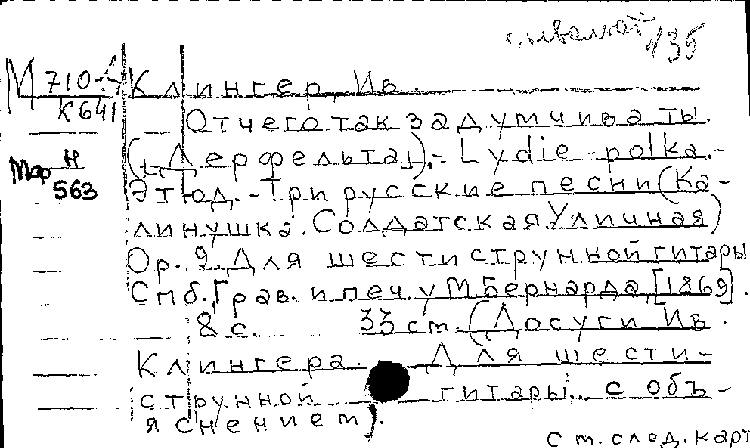 135
М 710-4 Клингер, Ив.
К641
Отчего так задумчива ты
Мор Н 563
(Дерфельта). - Lydie-polka. -
Этюд. - Три русские песни (Ка-
линушка. Солдатская. Уличная)
Op. 9. Для шестиструнной гитары
Спб., Грав. и печ. у М. Бернарда, [1869].
8 с. 33 см. (Досуги Ив.
Клингера. Для шести-
струнной гитары с объ-
яснением).
См. след. карт